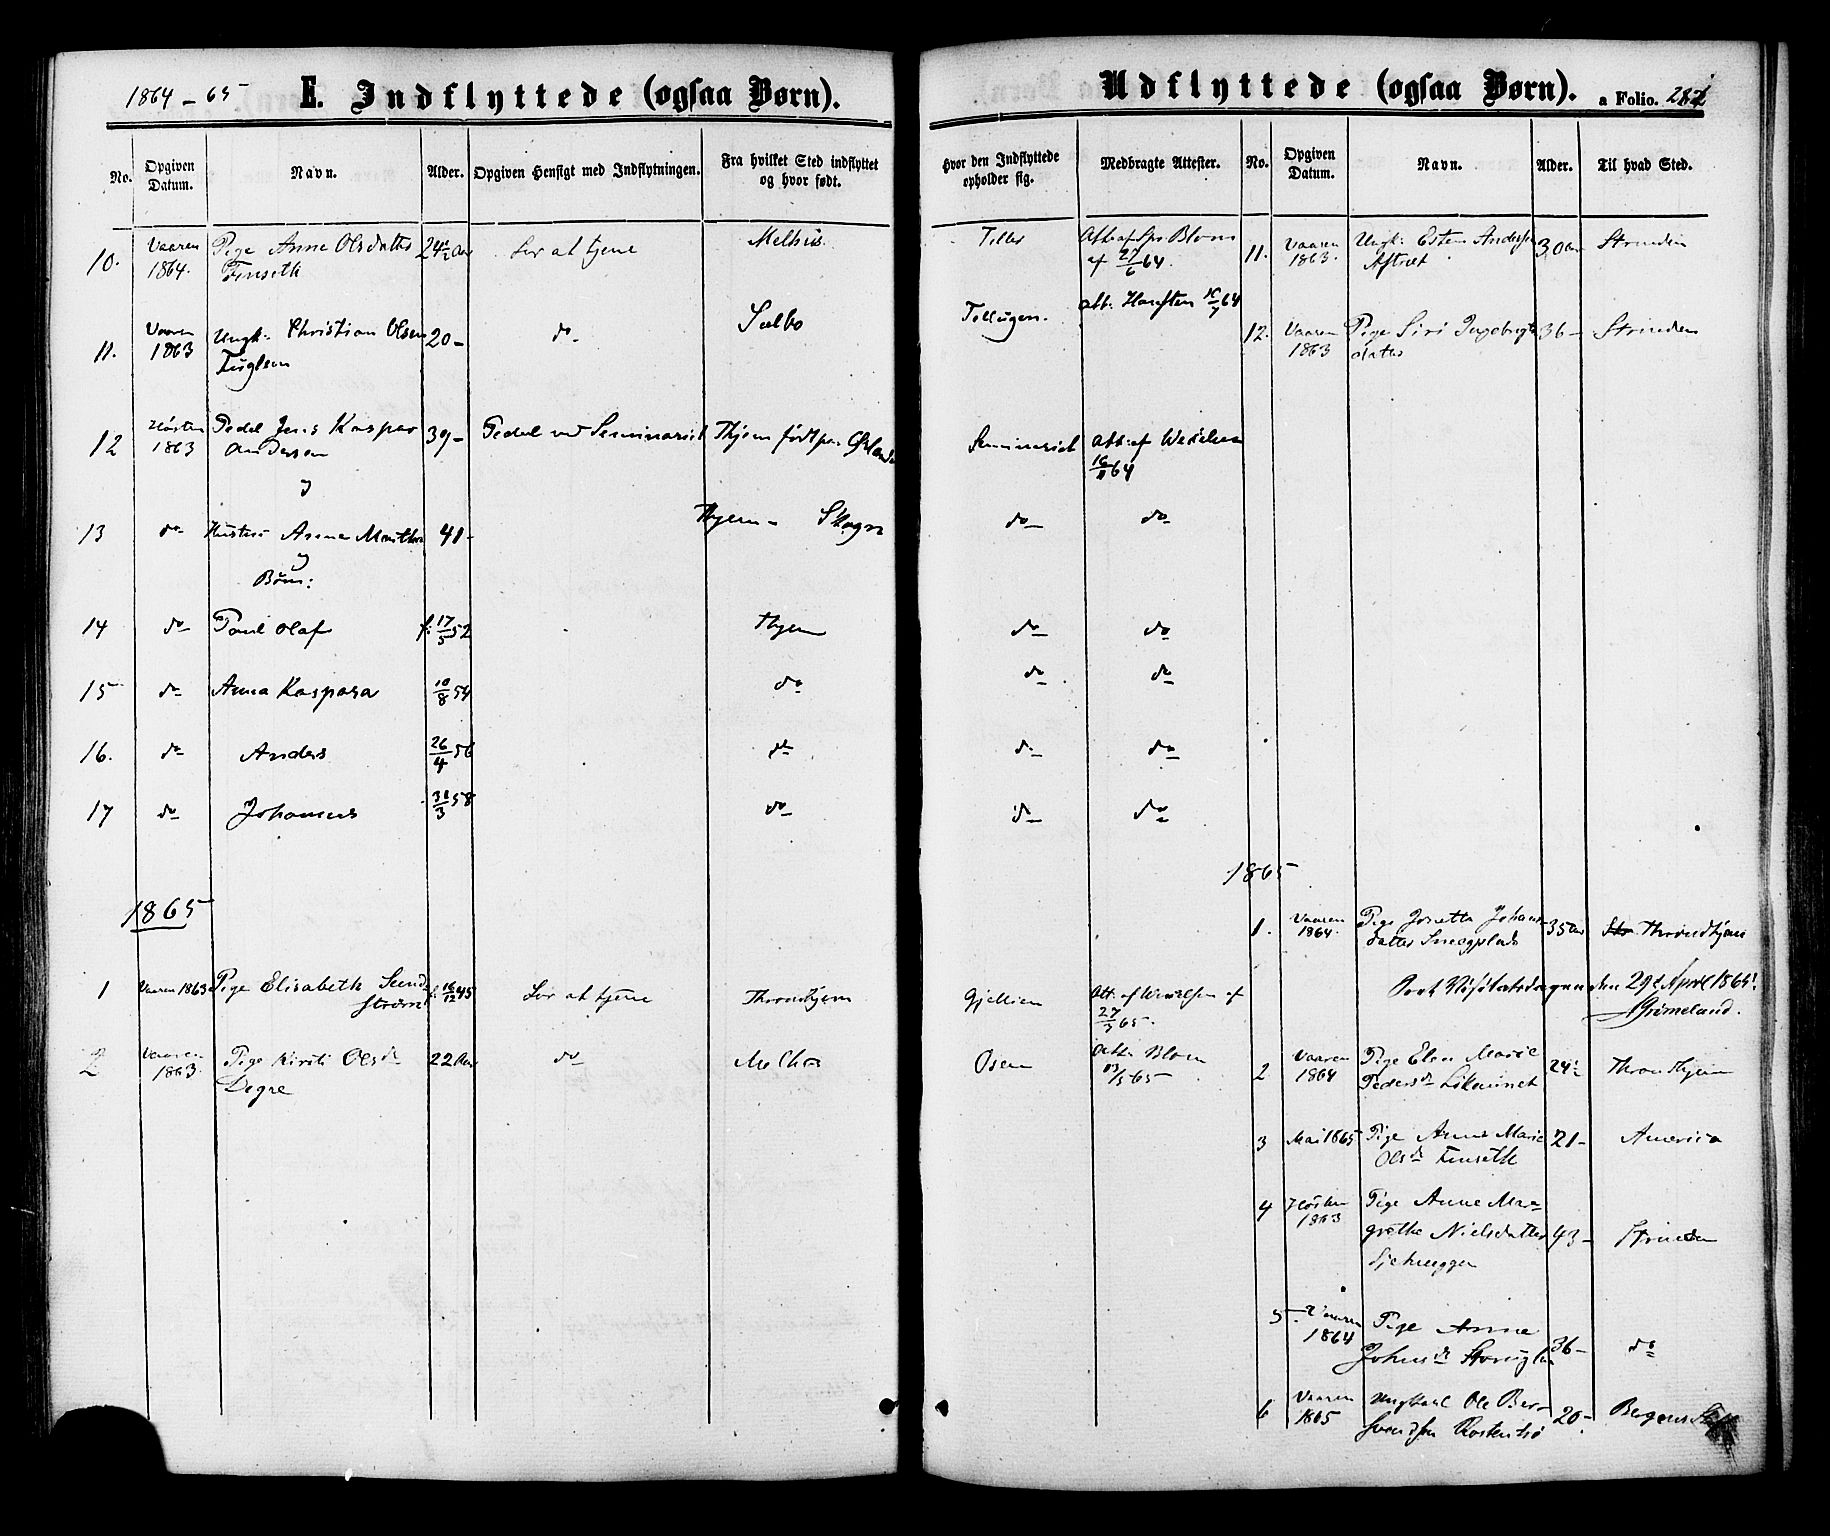 1864 - 65 E. Indflyttede (ogsaa Børn).
No. Opgiven Datum. Navn. Alder. Opgiven Hensigt med Indflytningen. Fra hvilket Sted indflyttet og hvor født.
10. Vaaren 1864. Pige Anne Olsdatter 24½ Aar For at tjene Melhus
Finseth
11. Vaaren 1863 Ungk: Christian Olsen 20- do Sælbo
Fuglem
12 Høsten 1863 Pedel Jens Kasper 39- Pedel ved Seminariet Thjem født paa Ørlandet
Andersen
13 do Hustru Anna 41- Thjem - Skogn
Børn:
14 do Paul Olaf f: 17/5 52 Thjem
15 do Anna Kaspara 10/8 54 do
16. do Anders 26/4 56 do
17 do Johannes 31/3 58 do
1865
1 Vaaren 1863 Pige Elisabeth Sund- f: 16/12 45 For at tjene Throndhjem
strøm
2 Vaaren 1863. Pige Kirsti Olsdr 22 Aar do Melhus
Degre
Udflyttede (ogsaa Børn). a Folio. 282
Hvor den Indflyttede opholder sig. Medbragte Attester. No. Opgiven Datum. Navn. Alder. Til hvad Sted.
Tiller Att: af Spr. Blom 11. Vaaren 1863. Ungk: Esten Andersen 30 Aar Strinden
af 27/6 64.
Att: 64
12. Vaaren 1863 Pige Siri Ingebrigts 36- Strinden
datter
Seminariet Att: af Wexelsen
16/11 64
do do
do do
do do
do do
do do
1865
1. Vaaren 1864. Pige Johans- 35 Aar Throndhjem
datter
den 29de April 1865!
Grimeland.
Gjellien Att: af Wexelsen af
27/3 65.
Osen Att: Blom
65
2 Vaaren 1864 Pige Elen Marie 24½ Throndhjem
Pedersdr
3 Mai 1865 Pige Anne Marie 21- America
Olsdr Finseth
4 Høsten 1863 Pige Anne Mar-
grethe Nielsdatter 43- Strinden
5 Vaaren 1864 Pige Anne
Johnsdr 36- do
6 Vaaren 1865 Ungkarl Ole Ber- 20-